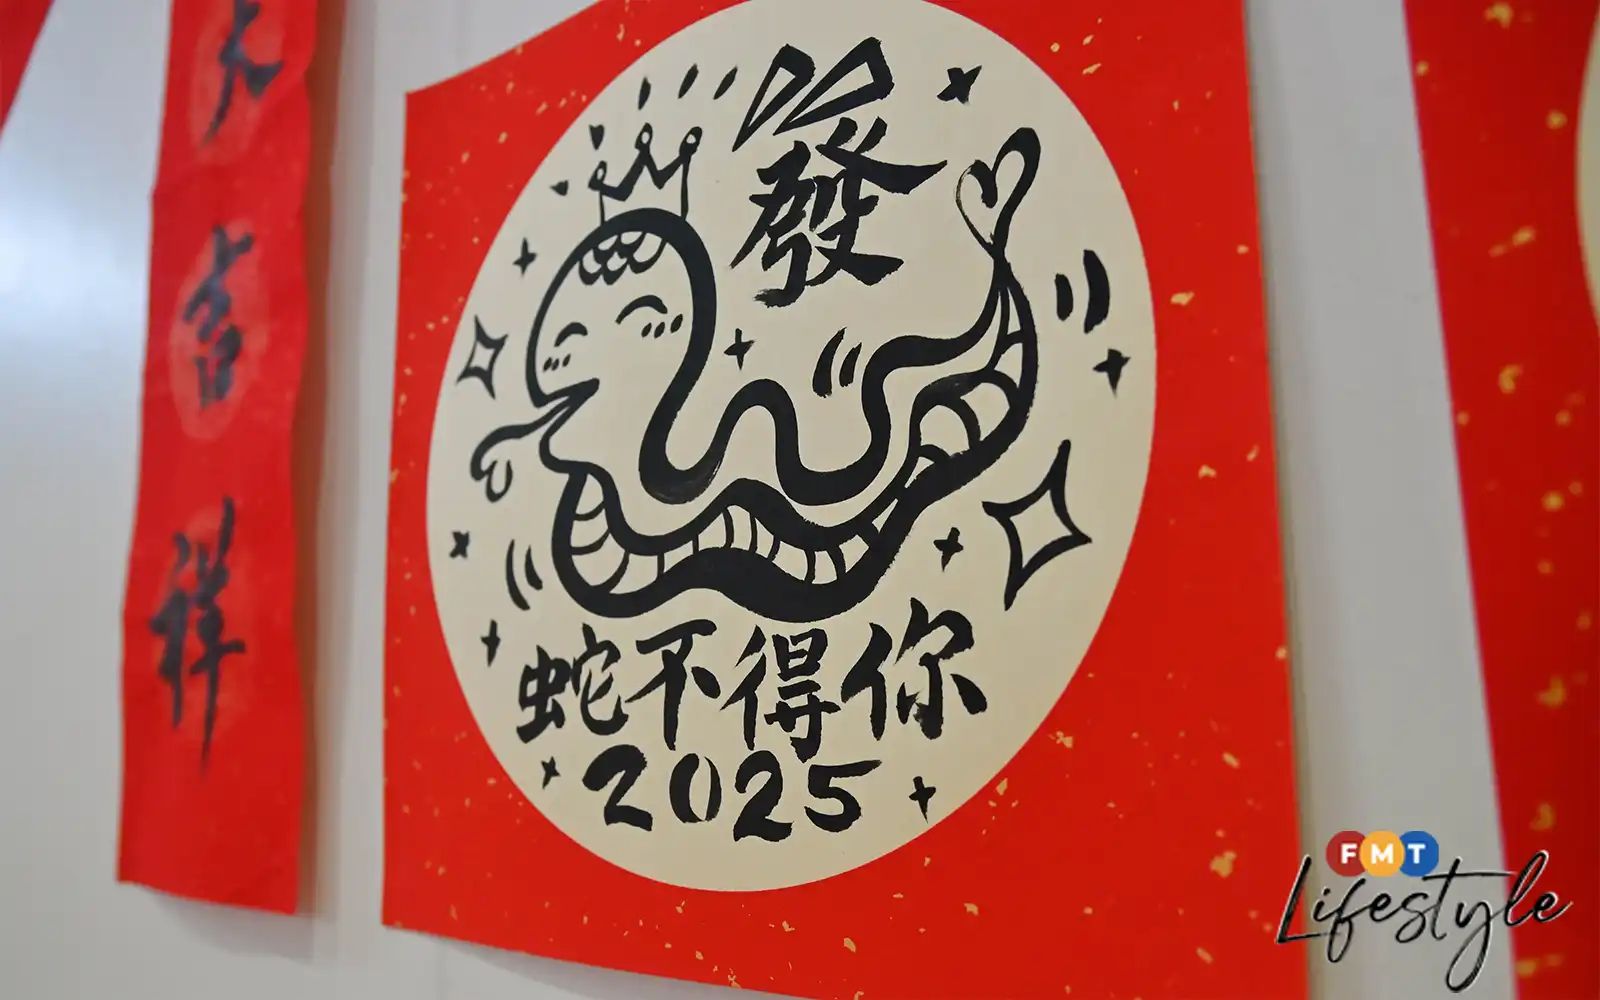 大
吉
祥
發
蛇不得你
2025
FMT
Lifestyle